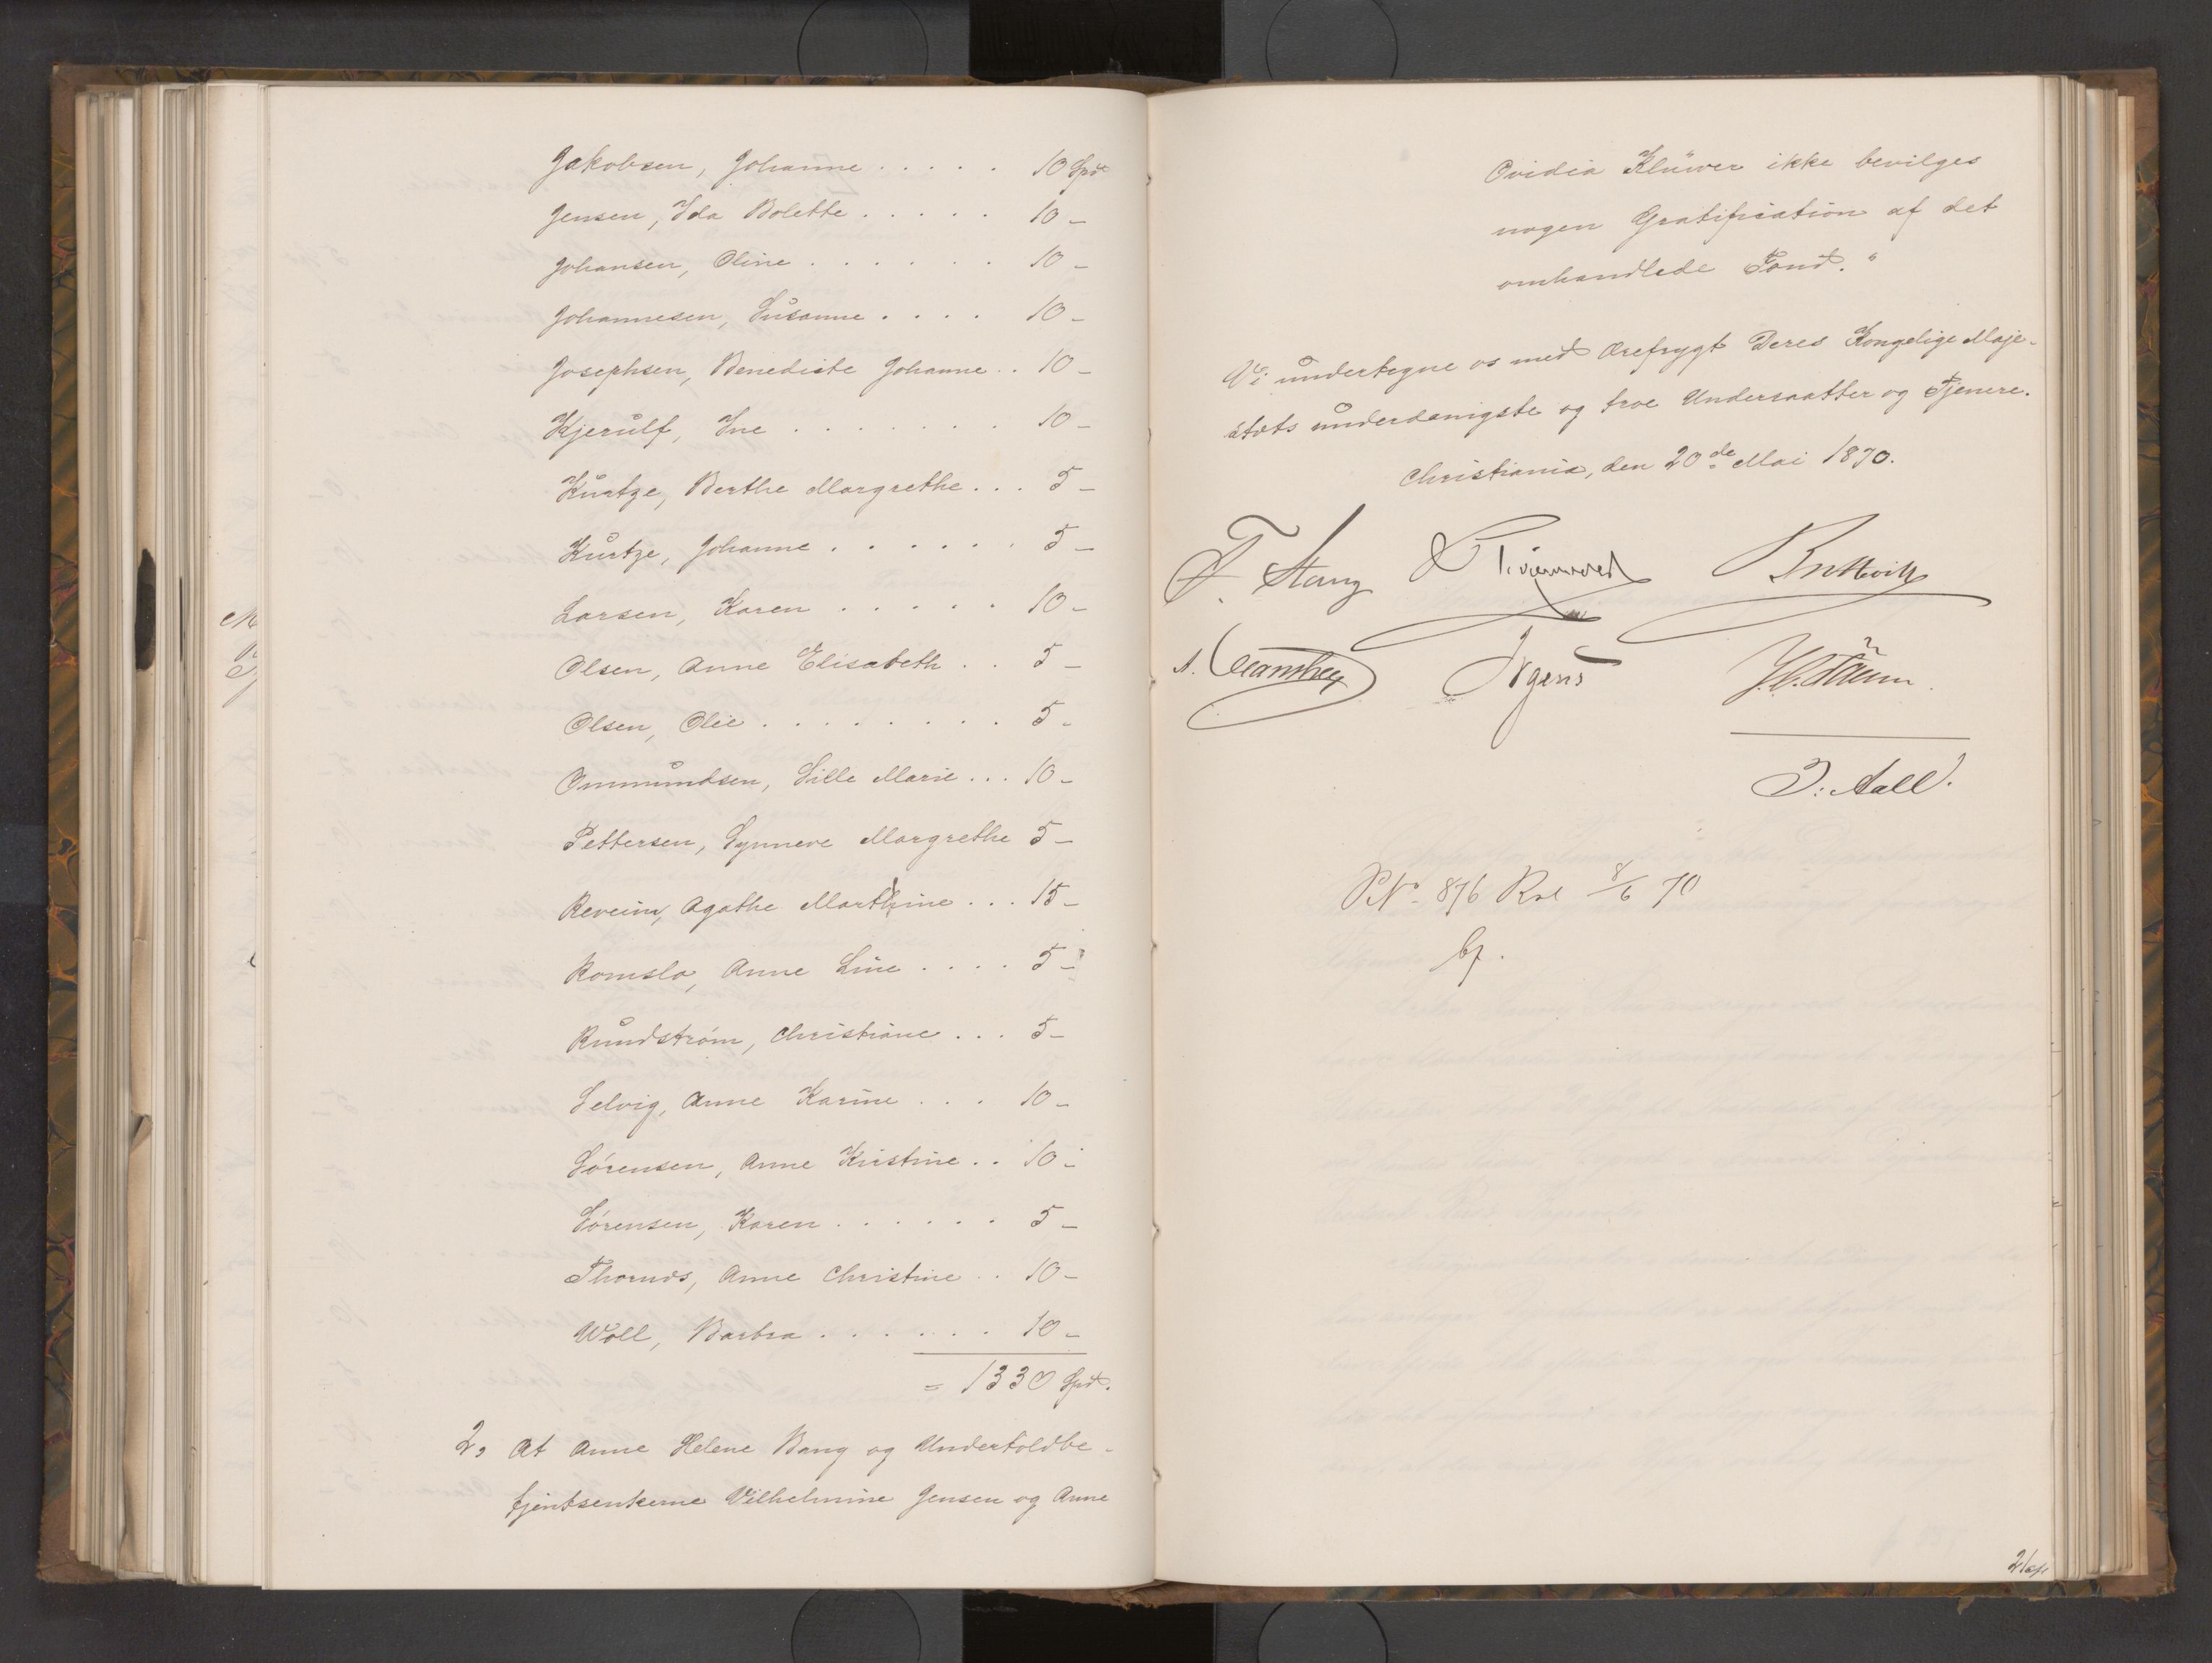 Jakobsen, Johanne . . . . . 10 Spd
Jensen, Ida Bolette . . . . . 10 -
Johansen, Oline . . . . . . 10 -
Johannesen, Susanne . . . . 10 -
Josephsen, Benedicte Johanne . . 10 -
Kjerulf, Ine . . . . . . . 10 -
Kurtze, Berthe Margrethe . . . 5 -
Kurtze, Johanne . . . . . . 5 -
Larsen, Karen . . . . . 10 -
Olsen, Anne Elisabeth . . 5 -
Olsen, Olie . . . . . . . . 5 -
Ommundsen, Sille Marie . . . 10 -
Pettersen, Synneve Margrethe 5 -
Reveim, Agathe Marthine . . . 15 -
Romslo, Anne Line . . . . 5 -
Rundström, Christiane . . . 5 -
Selvig, Anne Karine . . . 10 -
Sörensen, Anne Kristine . . 10 -
Sörensen, Karen . . . . . . 5 -
Anne Christine . . 10 -
Woll, Barbra . . . . . . 10 -
= 1330 Spd.
2, At Anne Helene Bang og Undertoldbe-
tjentsenkerne Vilhelmine Jensen og Anne
Ovidia Klüwer ikke bevilges
nogen Gratification af det
omhandlede Fond."
Vi undertegne os med Ærefrygt Deres Kongelige Maje-
stæts underdanigste og troe Undersaatter og Tjenere.
Christiania, den 20de Mai 1870.
F. Stang
Irgens
J. Aall.
PN 876 Rsl 8/6 70